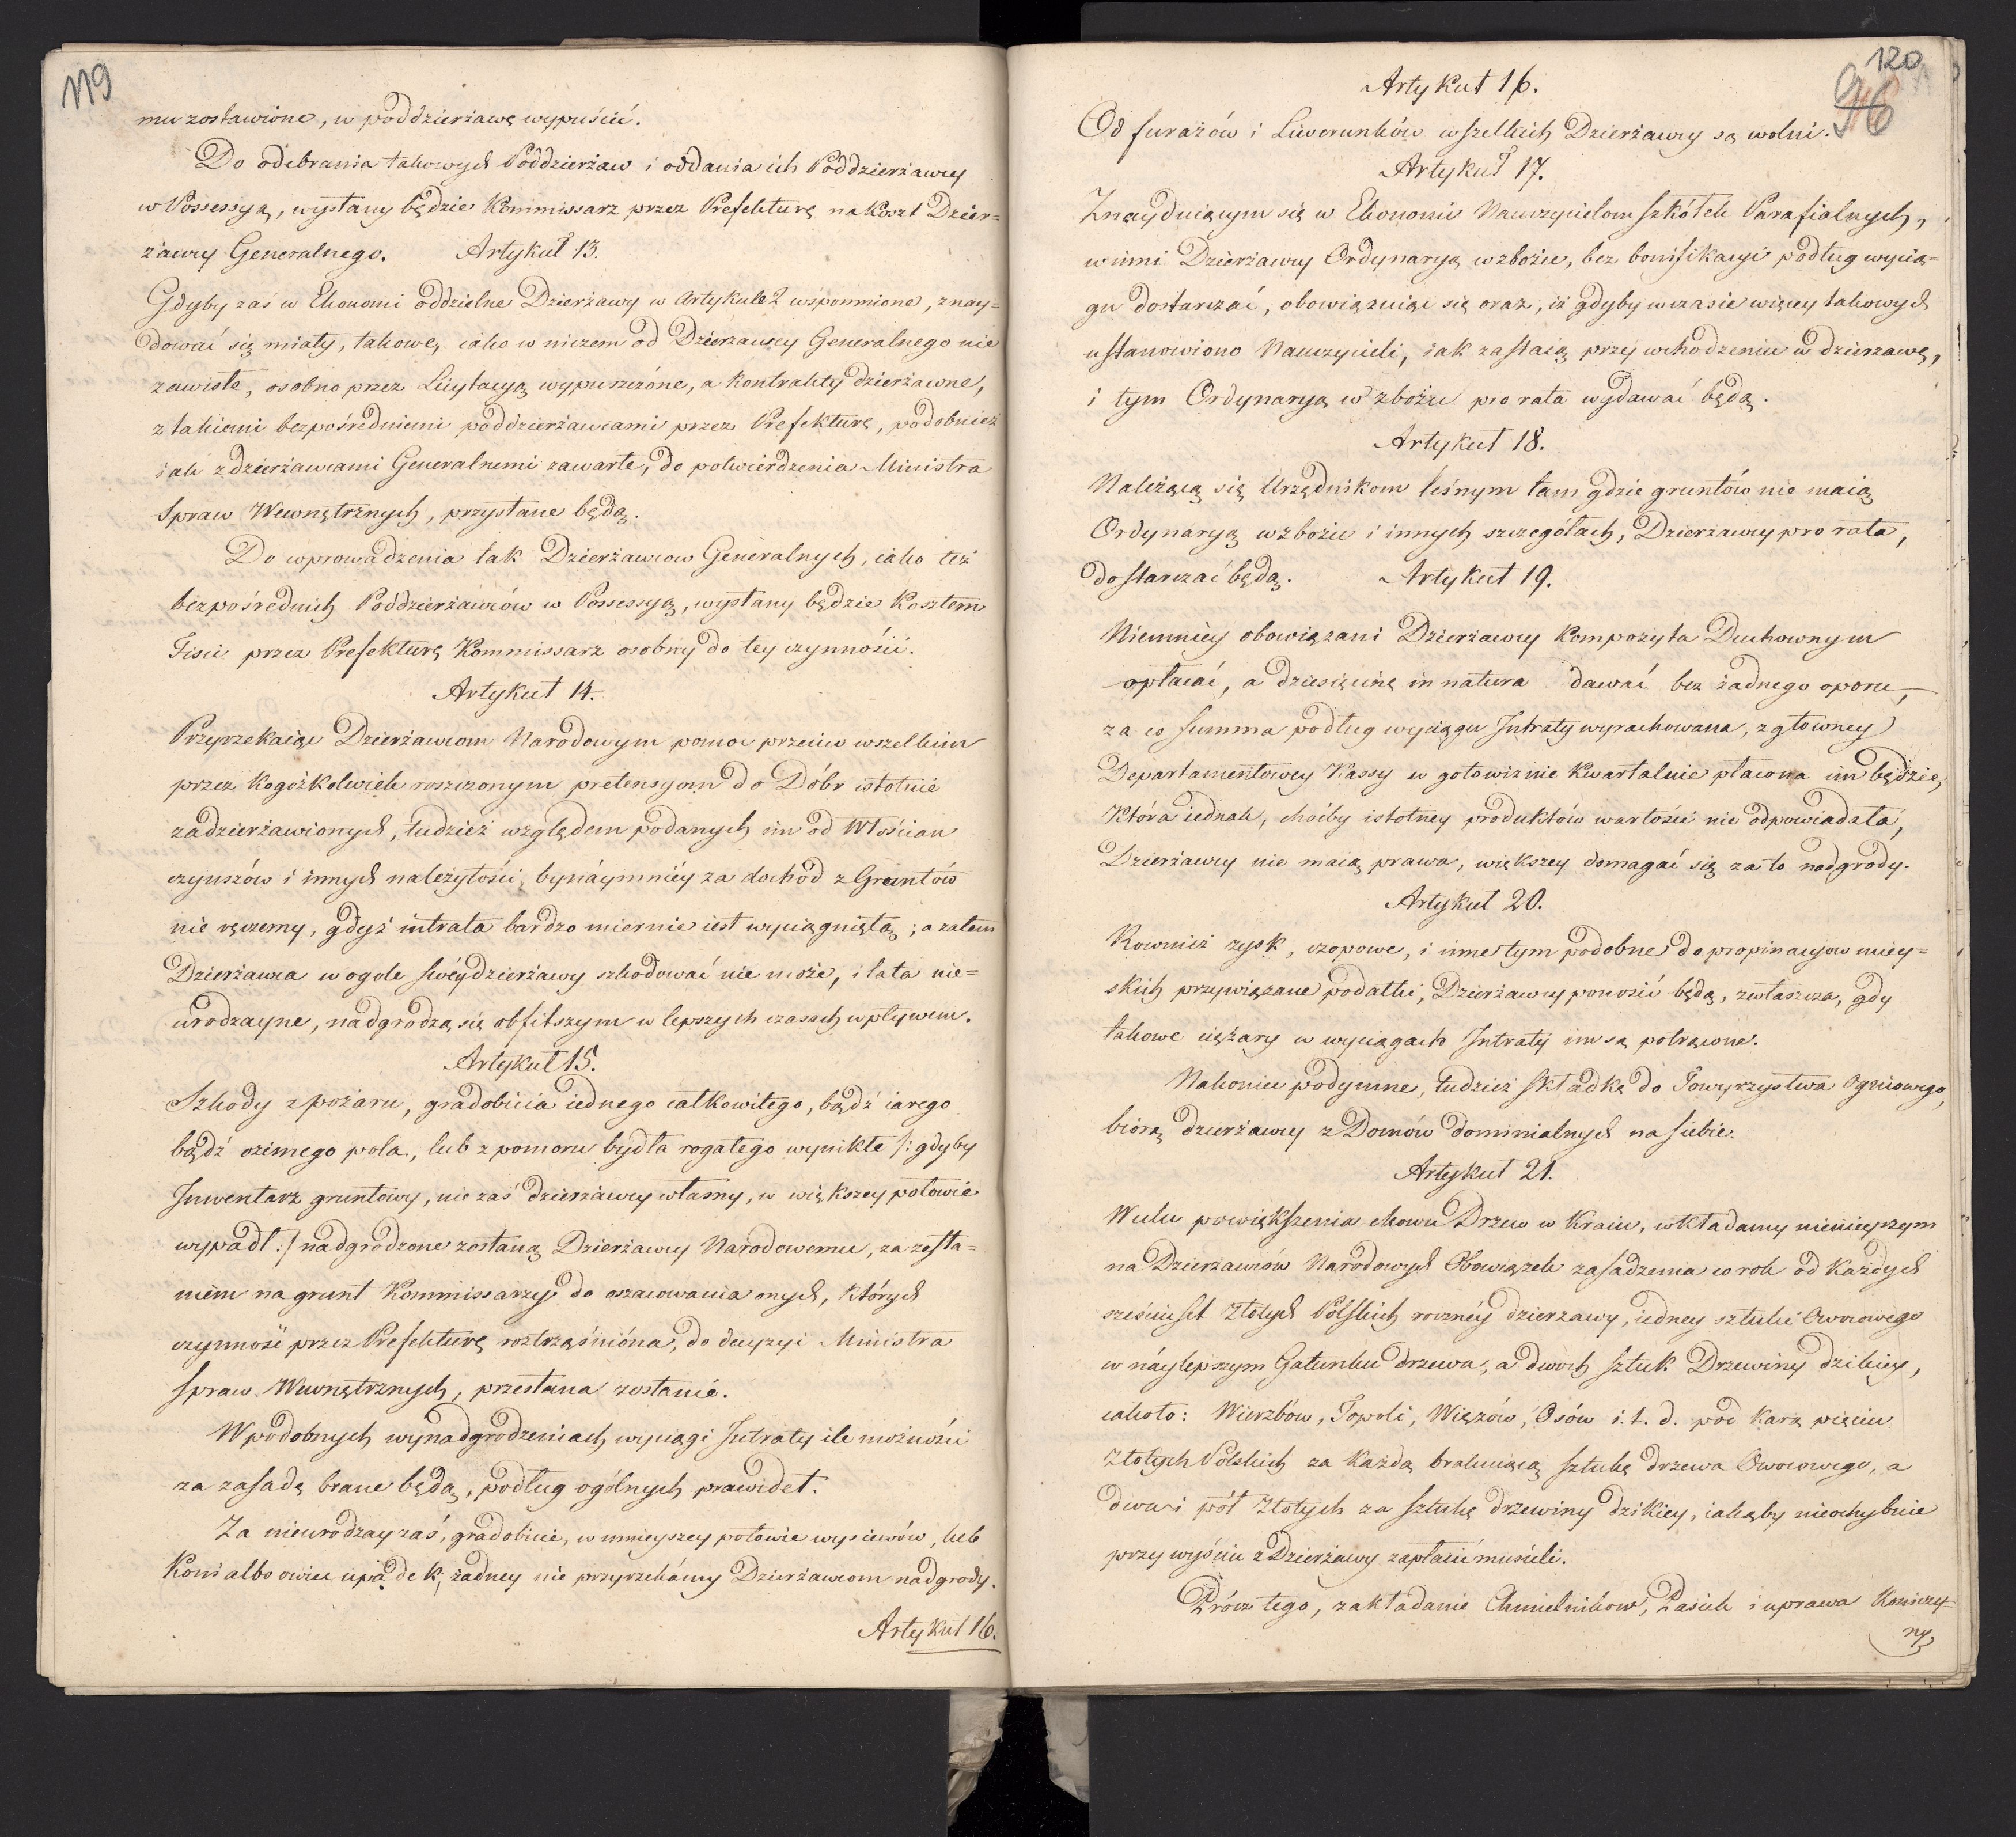 119
mu zostawione, w poddzierżawę wypuścić.
Do odebrania takowych Poddzierżaw i oddania ich Poddzierżawcy
w Possessyą, wysłany będzie Kommissarz przez Prefekturę na Koszt Dzier=
żawcy Generalnego. Artykuł 13.
Gdyby zaś w Ekonomi oddzielne Dzierżawy w Artykule 2 wspomnione, znay=
dować się miały, takowe, iako w niczem od Dzierzawcy Generalnego nie
zawisłe, osobno przez Licytacyą wypuszczone, a kontrakty dzierżawne,
z takiemi bezpośredniemi poddzierżawcami przez Prefekturę, podobnież
iak z dzierżawcami Generalnemi zawarte, do potwierdzenia Ministra
Spraw Wewnętrznych, przysłane będą.
Do wprowadzenia tak Dzierżawcow Generalnych, iako też
bezpośrednich Poddzierżawców w Possessyą, wysłany będzie Kosztem
Fisci przez Prefekturę Kommissarz osobny do tey czynności.
Artykuł 14.
Przyrzekaiąc Dzierżawcom Narodowym pomoc przeciw wszelkim
przez kogożkolwiek roszczonym pretensyom do Dóbr istotnie
zadzierżawionych, tudzież względem podanych im od Włościan
czynszów i innych należytości, bynáymniéy za dochód z Gruntów
nie ręczemy, gdyż intrata bardzo miernie iest wyciągniętą; a zatem
Dzierżawca w ogole swéy dzierżawy szkodować nie może, i lata nie=
urodzayne, nadgrodzą się obfitszym w lepszych czasach wpływem.
Artykuł 15.
Szkody z pożaru, gradobicia iednego całkowitego, bądź iarego
bądź ozimego pola, lub z pomoru bydła rogatego wynikłe /: gdyby
Inwentarz gruntowy, nie zaś dzierżawcy własny, w większey połowie
wypadł :/ nadgrodzone zostaną Dzierżawcy Narodowemu, za zesła=
niem na grunt Kommissarzy do oszacowania onych, których
czynność przez Prefekturę roztrząśnióna, do decyzyi Ministra
Spraw Wewnętrznych, przesłana zostanie.
W podobnych wynadgrodzeniach wyciągi Intraty ile możności
za zasadę brane będą, podług ogólnych prawideł.
Za nieurodzay zaś, gradobicie, w mnieyszey połowie wysiewów, lub
Koni albo owiec upadek, żadney nie przyrzekámy Dzierżawcom nadgrody.
Artykuł 16.
120
Artykuł 16.
Od furażów i Liwerunków wszelkich Dzierżawcy są wolni.
Artykuł 17.
Znayduiącym się w Ekonomii Nauczycielom szkółek Parafialnych,
winni Dzierżawcy Ordynaryą w zbożu, bez bonifikacyi podług wycią=
gu dostarczać, obowiązuiąc się oraz, iż gdyby w czasie więcey takowych
ustanowiono Nauczycieli, iak zastaią przy wchodzeniu w dzierzawę,
i tym Ordynaryą w zbożu pro rata wydawać będą.
Artykuł 18.
Należącą się Urzędnikom leśnym tam gdzie gruntów nie maią
Ordynaryą w zbożu i innych szczegółach, Dzierżawcy pro rata,
dostarczać będą. Artykuł 19.
Niemniey obowiązani Dzierżawcy Kompozyta Duchownym
opłacać, a dziesięcinę in natura dawać bez żadnego oporu,
za co summa podług wyciągu Intraty wyrachowana, z głowney
Departamentowey Kassy w gotowiznie kwartalnie płacona im będzie,
Która iednak, choćby istotney produktów wartości nie odpowiadała,
Dzierżawcy nie maią prawa, większey domagać się za to nadgrody.
Artykuł 20.
Rownież zysk, czopowe, i inne tym podobne do propinacyow miey=
skich przywiązane podatki, Dzierżawcy ponosić będą, zwłaszcza, gdy
takowe ciężary w wyciągach Intraty im są potrącone.
Nakoniec podymne, tudzież składkę do Towyrzystwa Ogniowego,
biorą dzierżawcy z Domów dominialnych na siebie.
Artykuł 21.
W celu powiększenia chowu Drzew w Kraiu, wkładamy ninieyszym
na Dzierżawców Narodowych Obowiązek zasadzenia co rok od każdych
sześciuset Złotych Polskich rocznéy dzierzawy, iedney sztuki Owocowego
w náylepszym Gatunku drzewa, a dwoch sztuk Drzewiny dzikiey,
iakoto: Wierzbów, Topoli, Więzów, Osów i.t.d. pod karą pięciu
Złotych Polskich za każdą brakuiącą sztukę drzewa Owocowego, a
dwa i pół Złotych za sztukę drzewiny dzikiey, iakąby nieochybnie
przy wyściu z Dzierżawy zapłacić musieli.
Prócz tego, zakładanie Chmielników, Pasiek i uprawa Koniczy=
ny